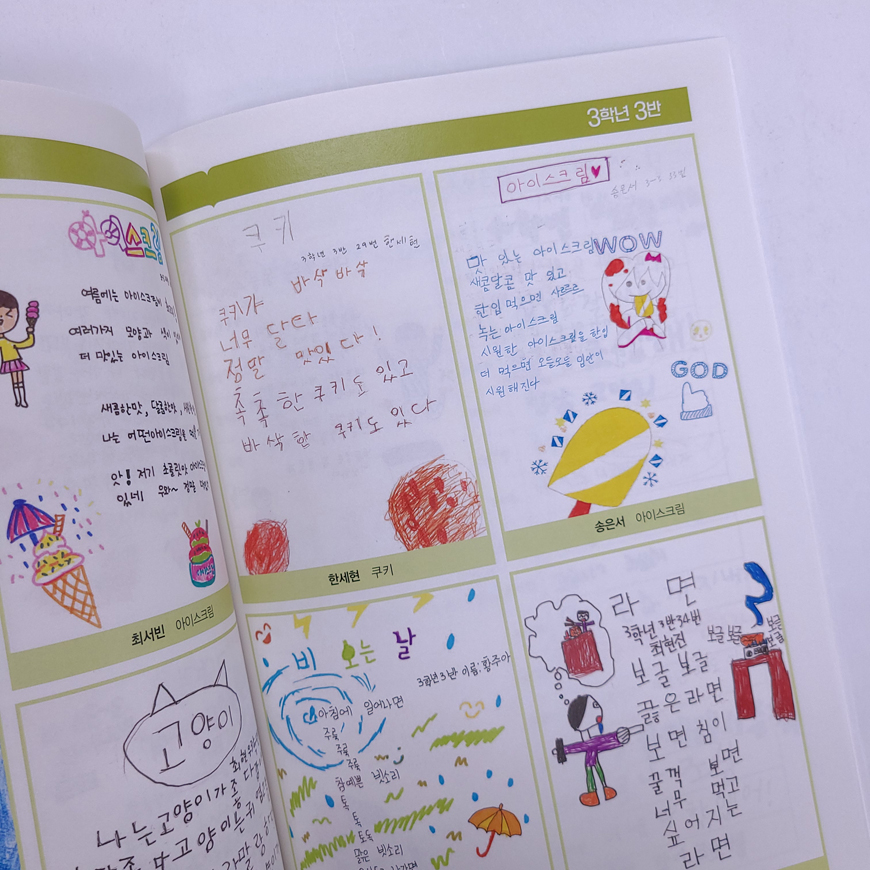 3학년 3반
아이스크림
여름에는 아이스크림이
여러가지 모양과 색이
더 맛있는 아이스크림
새콤한맛, 달콤한맛,
나는 어떤아이스크림을
앗! 저기 초콜릿맛
있네 우와~ 정말
최서빈 아이스크림
고양이
나는고양이가
쿠키
3학년 3반 29번 한세현
바삭바삭
쿠키가
너무 달다
정말 맛있다!
촉촉한 쿠키도 있고
바삭한 쿠키도 있다
한세현 쿠키
아이스크림
송은서
맛 있는 아이스크림
WOW
새콤달콤 맛 있고
한입 먹으면 사르르
녹는 아이스크림
시원한 아이스크림을 한입
더 먹으면 오들오들 입안이
시원해진다
GOD
송은서 아이스크림
비 오는 날
3학년 3반 이름: 황주아
아침에 일어나면
주룩
주룩
주룩
참예쁜 빗소리
톡
톡
토독
맑은 빗소리
라 면
3학년 3반 34번
최현진
보글 보글
보글
보글
보글 보글
끓은 라면
보면 침이
꿀꺽 보면
너무 먹고
싶어지는
라면